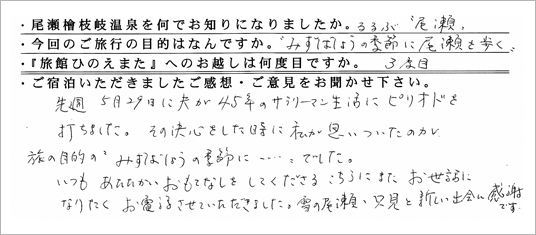 ・尾瀬檜枝岐温泉を何でお知りになりましたか。るるぶ"尾瀬"
・今回のご旅行の目的はなんですか。"みずばしょうの季節に尾瀬を歩く"
・『旅館ひのえまた』へのお越しは何度目ですか。 3度目
・ご宿泊いただきましたご感想・ご意見をお聞かせ下さい。
先週 5月29日に夫が45年のサラリーマン生活にピリオドを
打ちました。その決心をした時に私が思いついたのが、
旅の目的の"みずばしょうの季節に……"でした。
いつもあたたかいおもてなしをしてくださるこちらにまたお世話に
なりたくお電話させていただきました。雪の尾瀬・只見と新しい出会いに感謝
です。